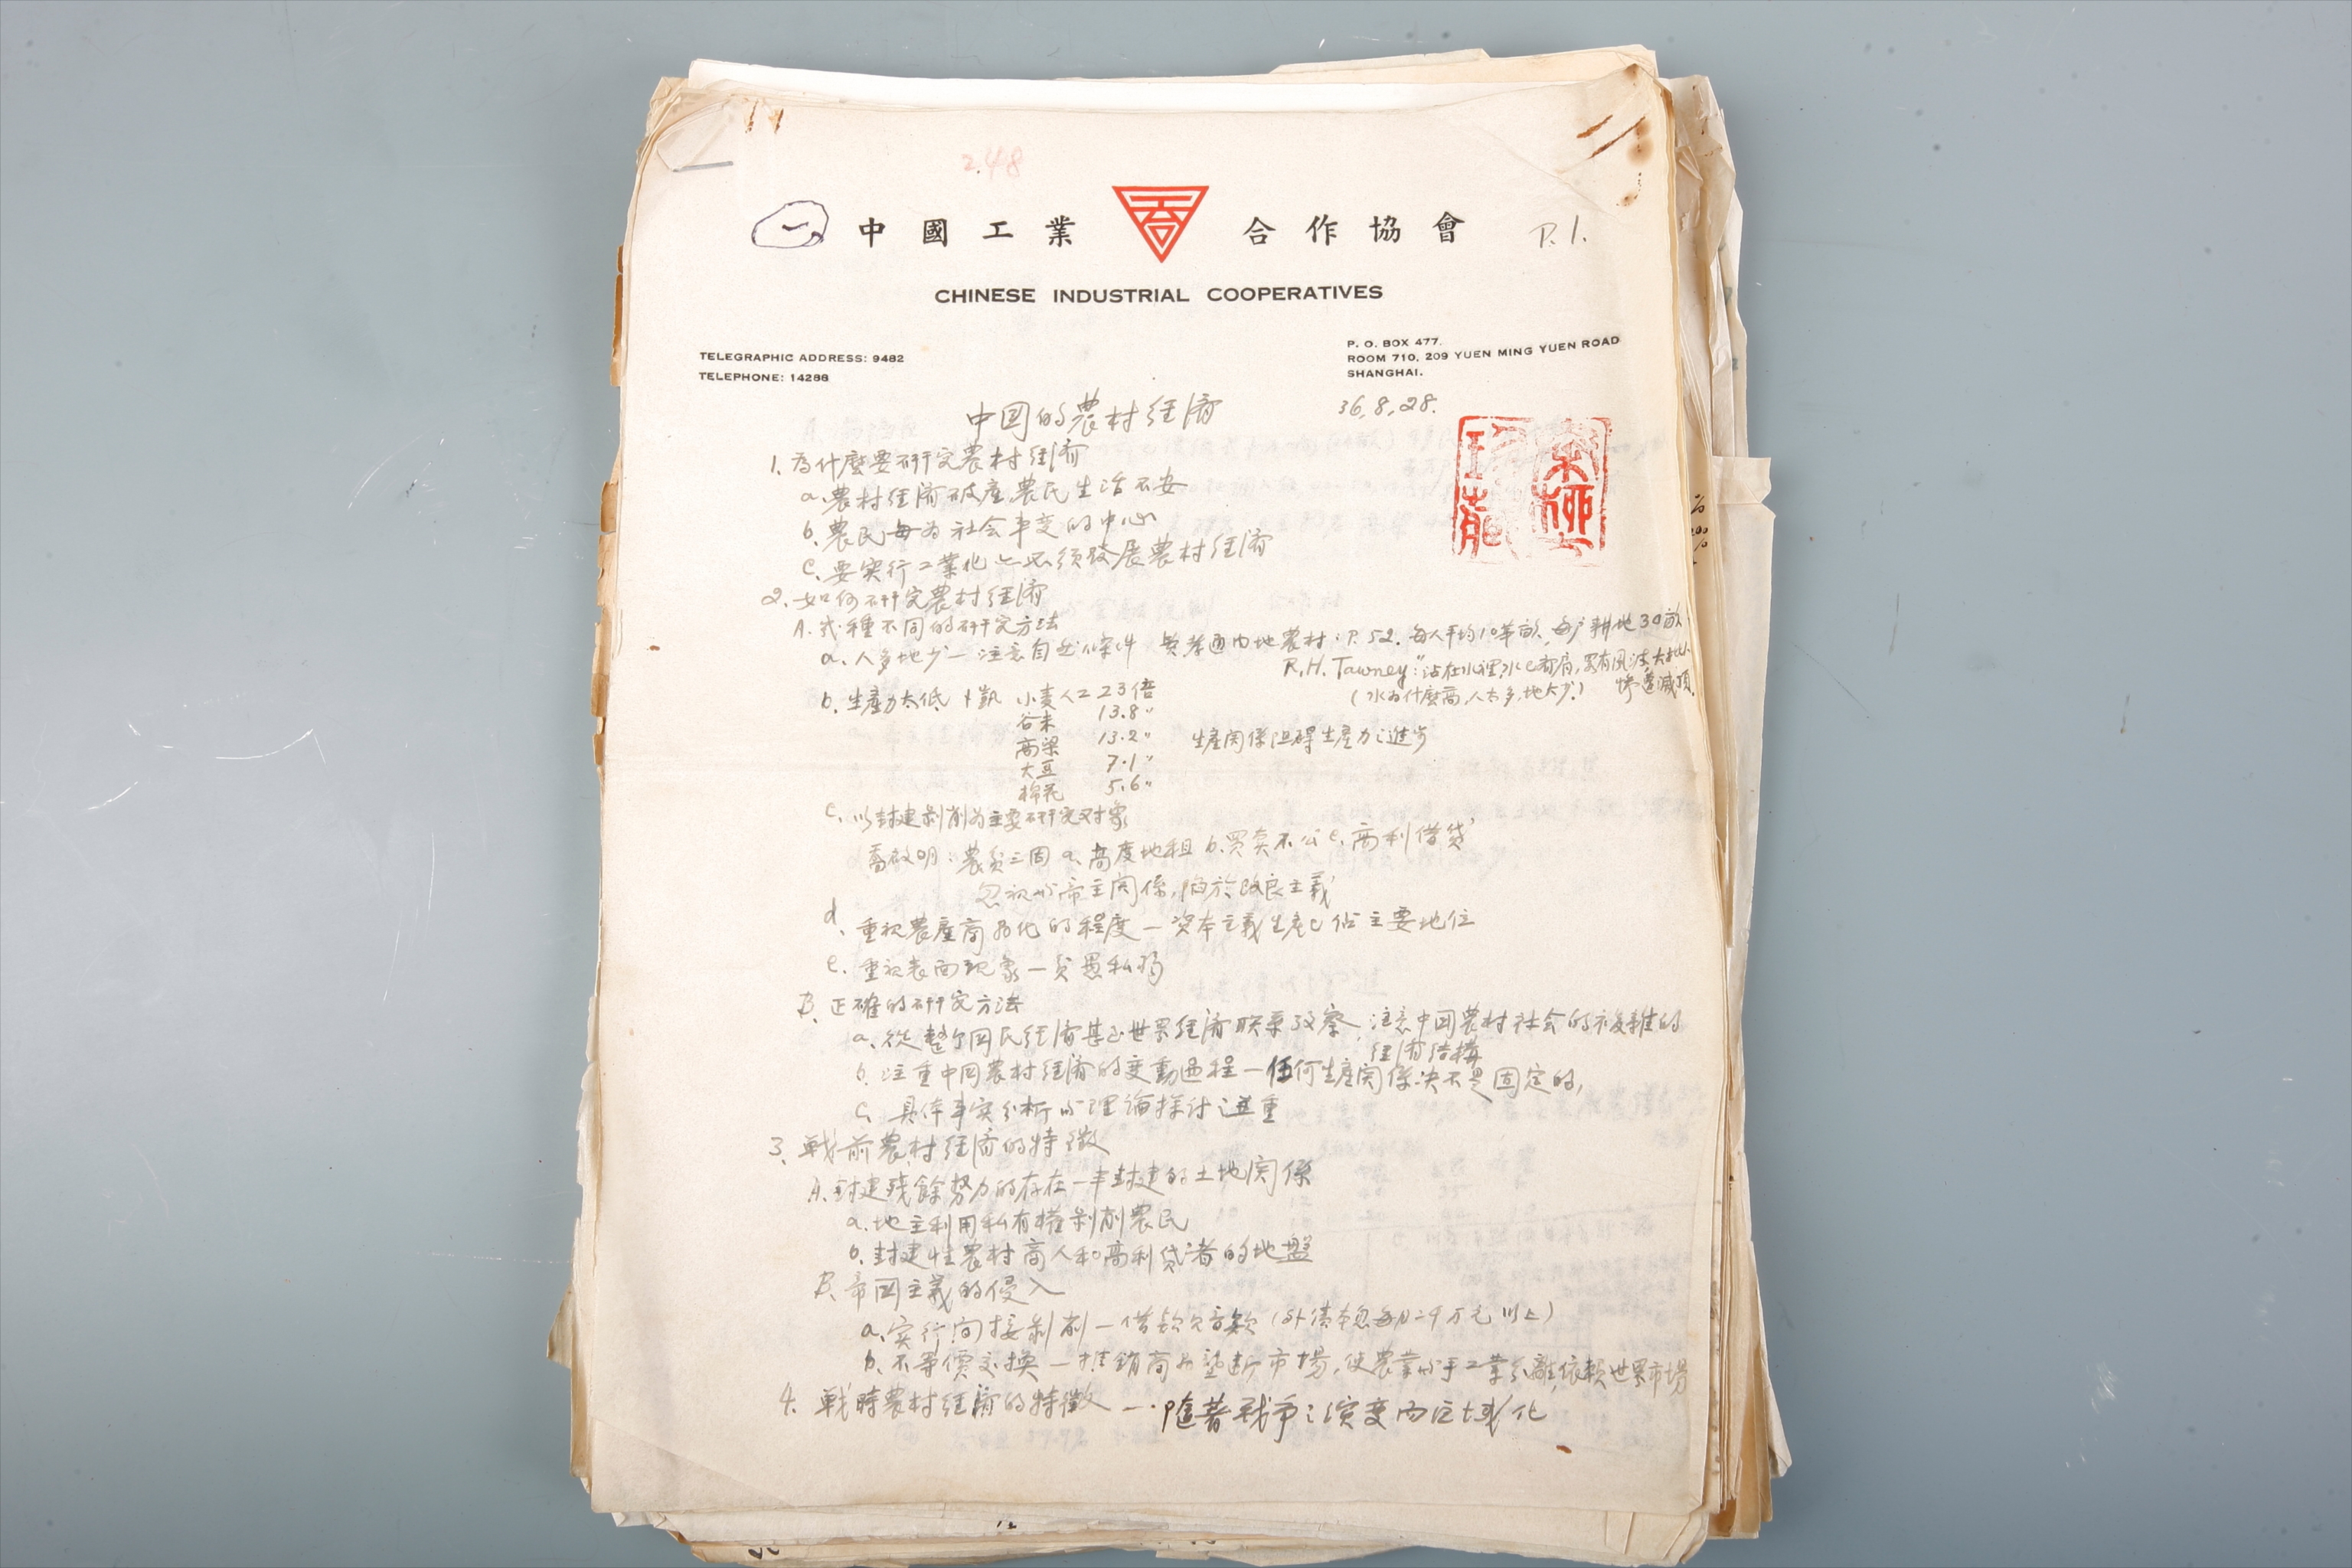 2.48
一 中國工業 合作協會 P.1.
CHINESE INDUSTRIAL COOPERATIVES
TELEGRAPHIC ADDRESS: 9482
TELEPHONE: 14288
P. O. BOX 477.
ROOM 710, 209 YUEN MING YUEN ROAD
SHANGHAI.
中国的農村経濟
36,8,28.
1. 為什麼要研究農村経濟
a. 農村経濟破産,農民生活不安
b. 農民每為社会事变的中心
c. 要实行工業化必須發展農村経濟
2. 如何研究農村経濟
A. 幾種不同的研究方法
a. 人多地少—注意自然條件 費孝通内地農村:P.52. 每人平均10等畝,每户耕地30畝
R.H. Tawney:"站在水裡,水已齊肩,罗有風波
(水為什麼高,人太多,地太少.) 惨遭滅頂.
b. 生產力太低 卜凱 小麦人工 23倍
谷未 13.8〃
高梁 13.2〃
大豆 7.1〃
棉花 5.6〃
生產関係阻碍生產力之進步
c. 以封建剝削為主要研究对象
喬啟明:農貧三因 a. 高度地租 b. 買卖不公 c. 高利借贷
忽視帝主関係,陷於改良主義
d. 重視農產商品化的程度—資本主義生產已佔主要地位
e. 重視表面現象—貧愚私弱
B. 正確的研究方法
a. 從整个国民経濟甚至世界経濟联系攷察,注意中国農村社会的複雜的
経濟结構
b. 注重中国農村経濟的変動過程—任何生產関係决不是固定的,
c. 具体事实分析理論探讨並重
3. 戰前農村経濟的特徵
A. 封建殘餘势力的存在—半封建的土地関係
a. 地主利用私有權剝削農民
b. 封建性農村商人和高利贷者的地盤
B. 帝国主義的侵入
a. 实行间接剝削—借款(外債本息每月二千万元以上)
b. 不等價交換—推銷商品壟断市場,使農業手工業分離,依賴世界市場
4. 戰時農村経濟的特徵—隨著戰争之演变而区域化